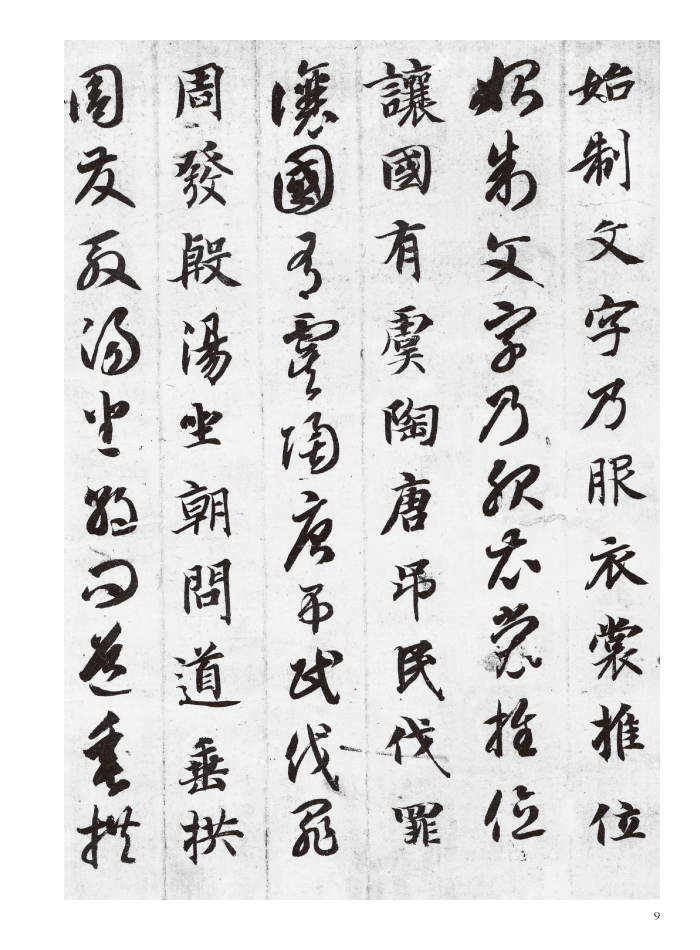 始制文字乃服衣裳推位
始制文字乃服衣裳推位
讓國有虞陶唐吊民伐罪
讓國有虞陶唐吊民伐罪
周發殷湯坐朝問道垂拱
周發殷湯坐朝問道垂拱
9